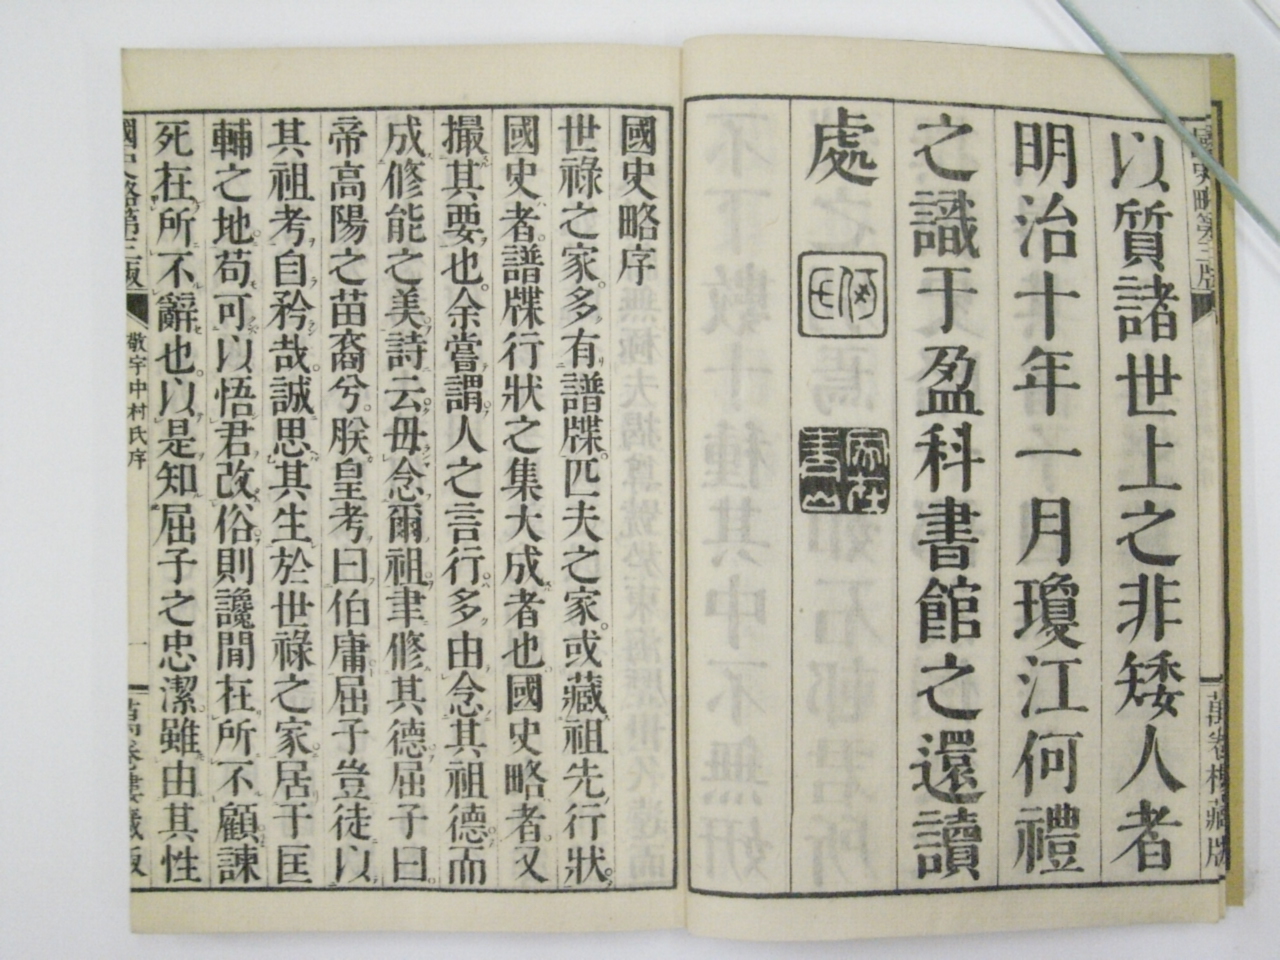 以質諸世上之非矮人者
明治十年一月瓊江何禮
之識于盈科書館之還讀
處
國史略序
世祿之家。多有譜牒。匹夫之家。或藏祖先行狀。
國史者。譜牒行狀之集大成者也。國史略者。又
撮其要也。余嘗謂。人之言行。多由念其祖德而
成修能之美。詩云。毋念爾祖。聿修其德。屈子曰。
帝高陽之苗裔兮。朕皇考曰伯庸。屈子豈徒以
其祖考自矜哉。誠思其生於世祿之家。居于匡
輔之地。苟可以悟君改俗。則讒閒在所不顧。諫
死在所不辭也。以是知屈子之忠潔。雖由其性
國史略第三版
敬宇中村氏序
一
萬卷樓藏版
國史略第三版
萬卷樓藏版